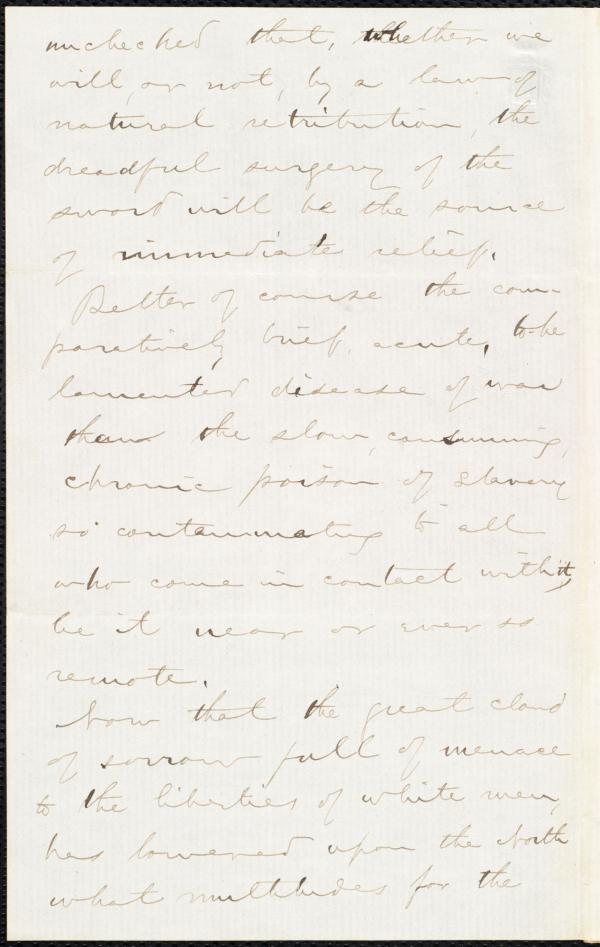 unchecked that, whether we
will, or not, by a law of
natural retribution, the
dreadful surgery of the
sword will be the source
of immediate relief.
Better of course the com-
paratively brief, acute, to be
lamented disease of war
than the slow, consuming,
chronic poison of slavery
so contaminating to all
who come in contact with it,
be it near or ever so
remote.
Now that the great cloud
of sorrow full of menace
to the liberties of white men,
has lowered upon the North
what multitudes for the